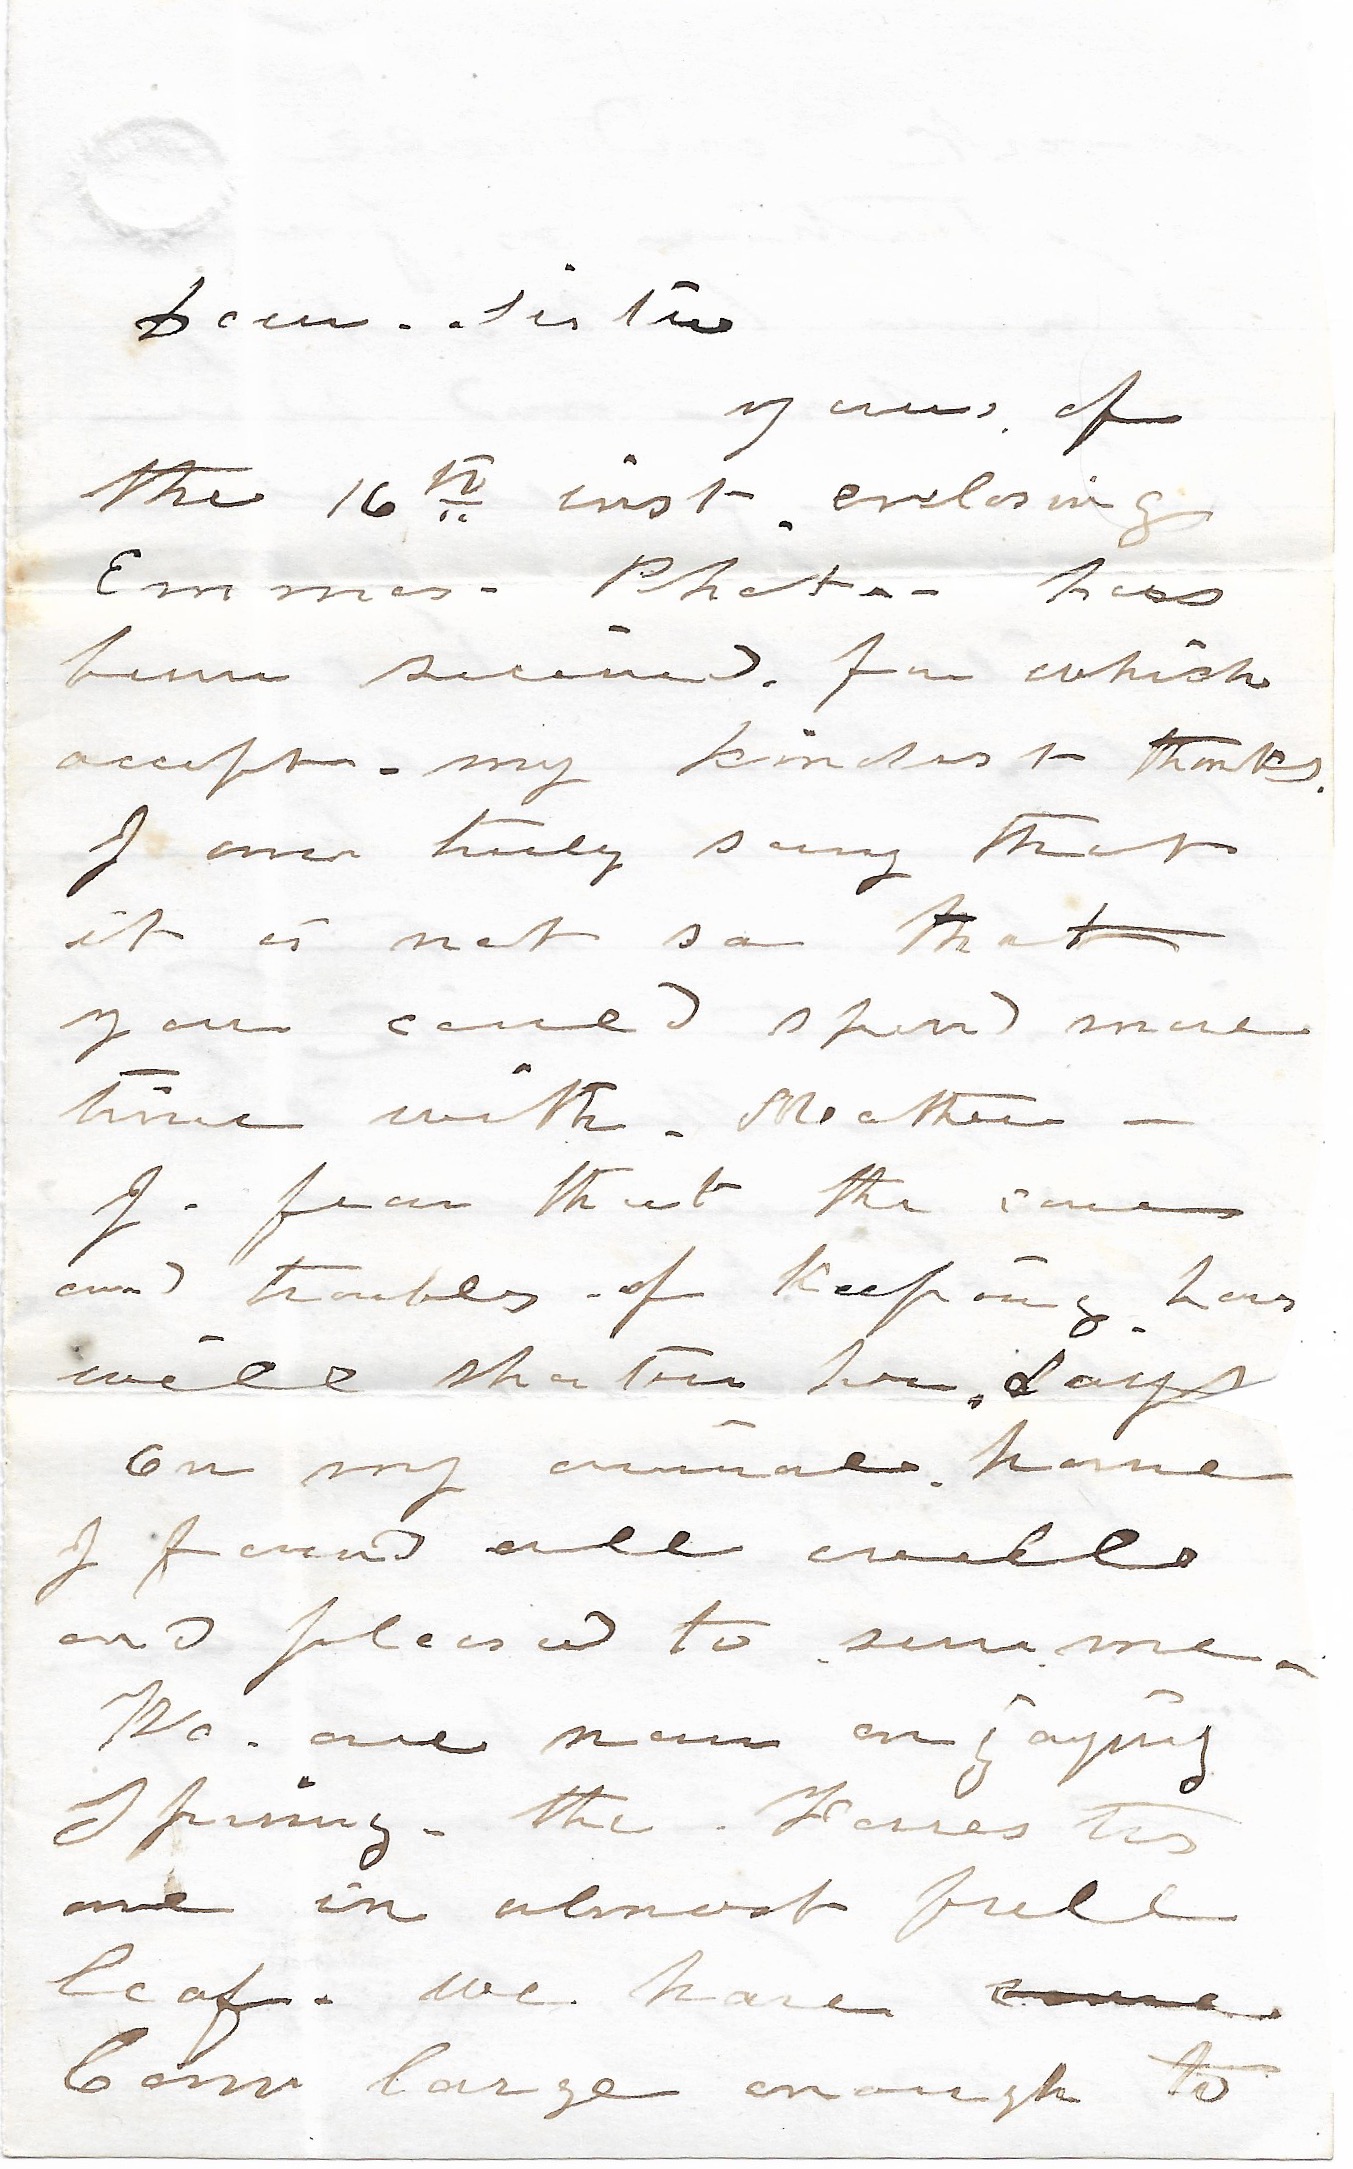 Dear. Sister
yours. of
the 16th inst. enclosing
Emmas- Phot-- has
been received. for which
accept. my kindest thanks.
I am truly sorry that
it is not so that
you could spend more
time with. Mother -
I. fear that the cares
and troubles of Keeping. hous
will shorten her. days
On my arrival. home
I found all well
and pleased to see me-
We. are now enjoying
Spring- the. Forrests
are in almost full
leaf. we have
Corn large enough to